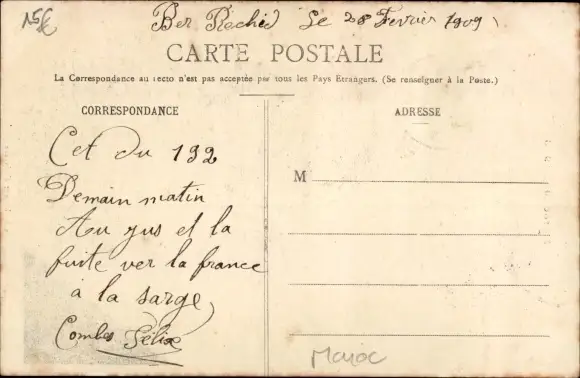 15€
Ber Rechid Le 28 Fevrier 1909
CARTE POSTALE
La Correspondance au recto n'est pas acceptée par tous les Pays Etrangers. (Se renseigner à la Poste.)
CORRESPONDANCE
Cet du 192
Demain matin
Au jus et la
fuite ver la france
à la sarge
Combes Félix
ADRESSE
M
Maroc